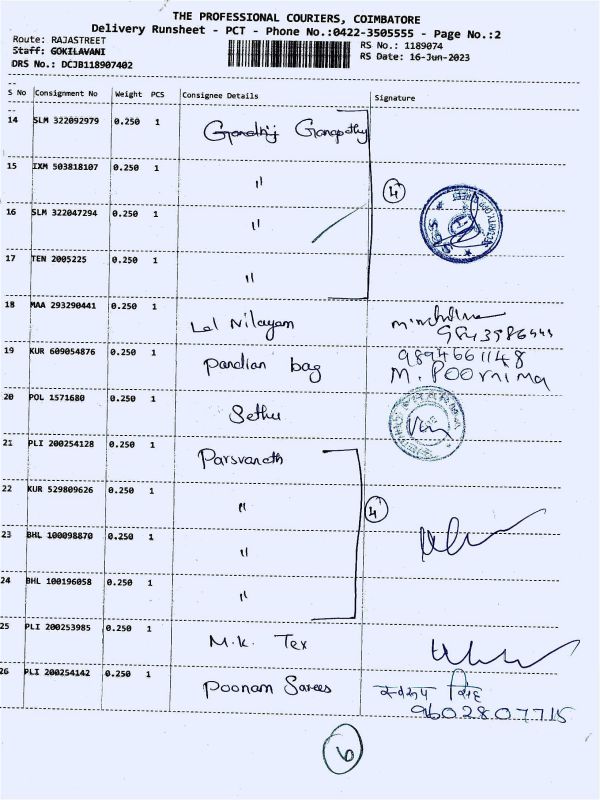 THE PROFESSIONAL COURIERS, COIMBATORE
Delivery Runsheet - PCT - Phone No.:0422-3505555 - Page No.:2
Route: RAJASTREET
Staff: GOKILAVANI
DRS No.: DCJB118907402
RS No.: 1189074
RS Date: 16-Jun-2023
S No Consignment No Weight PCS Consignee Details Signature
14 SLM 322092979 0.250 1 Ganapathy
15 IXM 503818107 0.250 1 "
16 SLM 322047294 0.250 1 "
17 TEN 2005225 0.250 1 "
4
18 MAA 293290441 0.250 1 Lal Nilayam
19 KUR 609054876 0.250 1 Pandian bag 9894661148
M. POORNIMA
20 POL 1571680 0.250 1 Sethu
21 PLI 200254128 0.250 1 Parsvanath
22 KUR 529809626 0.250 1 "
23 BHL 100098870 0.250 1 "
24 BHL 100196058 0.250 1 "
4
25 PLI 200253985 0.250 1 M.K. Tex
26 PLI 200254142 0.250 1 Poonam Sarees सिंह
9602807715
6